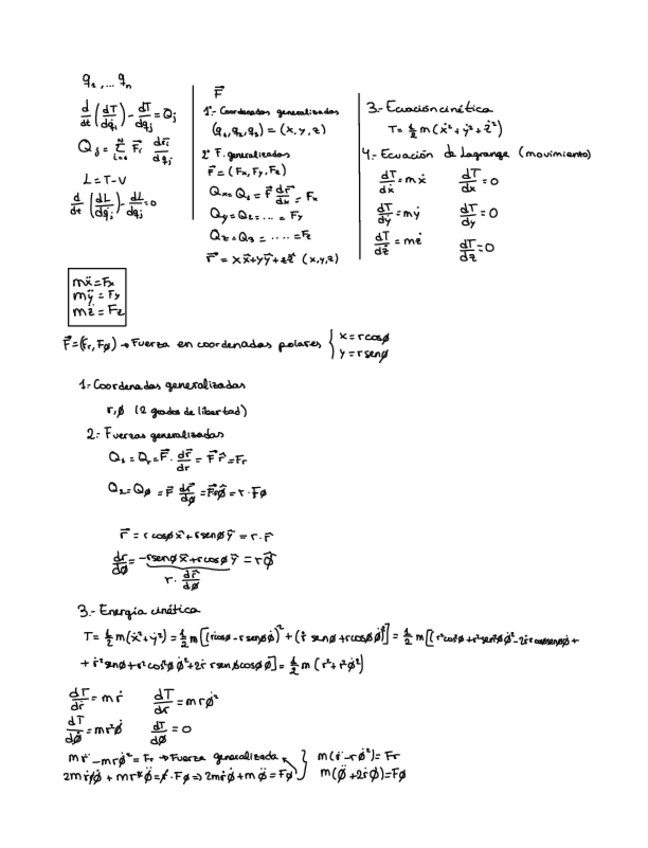 q₁, ... qₙ
d/dt (dT/dq̇ⱼ) - dT/dqⱼ = Qⱼ
Qⱼ = Σ F⃗ᵢ dr⃗ᵢ/dqⱼ
L = T - V
d/dt (dL/dq̇ⱼ) - dL/dqⱼ = 0
F⃗
1º.- Coordenadas generalizadas
(q₁, q₂, q₃) = (x, y, z)
2º F. generalizadas
F⃗ = (Fx, Fy, Fz)
Qx = Q₁ = F⃗ dr⃗/dx = Fx
Qy = Q₂ = ... = Fy
Qz = Q₃ = .... = Fz
r⃗ = x x⃗ + y y⃗ + z z⃗ (x, y, z)
3.- Ecuación cinética
T = 1/2 m (ẋ² + ẏ² + ż²)
4.- Ecuación de Lagrange (movimiento)
dT/dẋ = mẋ dT/dx = 0
dT/dẏ = mẏ dT/dy = 0
dT/dż = mż dT/dz = 0
mẍ = Fx
mÿ = Fy
mz̈ = Fz
F⃗ = (Fr, Fφ) → Fuerza en coordenadas polares { x = r cosφ
y = r senφ
1.- Coordenadas generalizadas
r, φ (2 grados de libertad)
2.- Fuerzas generalizadas
Q₁ = Qr = F⃗ · dr⃗/dr = F⃗ r̂ = Fr
Q₂ = Qφ = F⃗ dr⃗/dφ = F⃗ r φ̂ = r · Fφ
r⃗ = r cosφ x⃗ + r senφ y⃗ = r · r̂
dr/dφ = -r senφ x⃗ + r cosφ y⃗ = r φ̂
r · dr̂/dφ
3.- Energía cinética
T = 1/2 m (ẋ² + ẏ²) = 1/2 m [(ṙ cosφ - r senφ φ̇)² + (ṙ senφ + r cosφ φ̇)²] = 1/2 m
+ ṙ² senφ + r² cos²φ φ̇² + 2ṙ r senφ cosφ φ̇] = 1/2 m (ṙ² + r² φ̇²)
dT/dṙ = mṙ dT/dr = m r φ̇²
dT/dφ̇ = m r² φ̇ dT/dφ = 0
m r̈ - m r φ̇² = Fr → Fuerza generalizada } m(r̈ - r φ̇²) = Fr
2m ṙ r φ̇ + m r² φ̈ = r · Fφ ⇒ 2m ṙ φ̇ + m φ̈ = Fφ m(φ̈ + 2ṙ φ̇) = Fφ